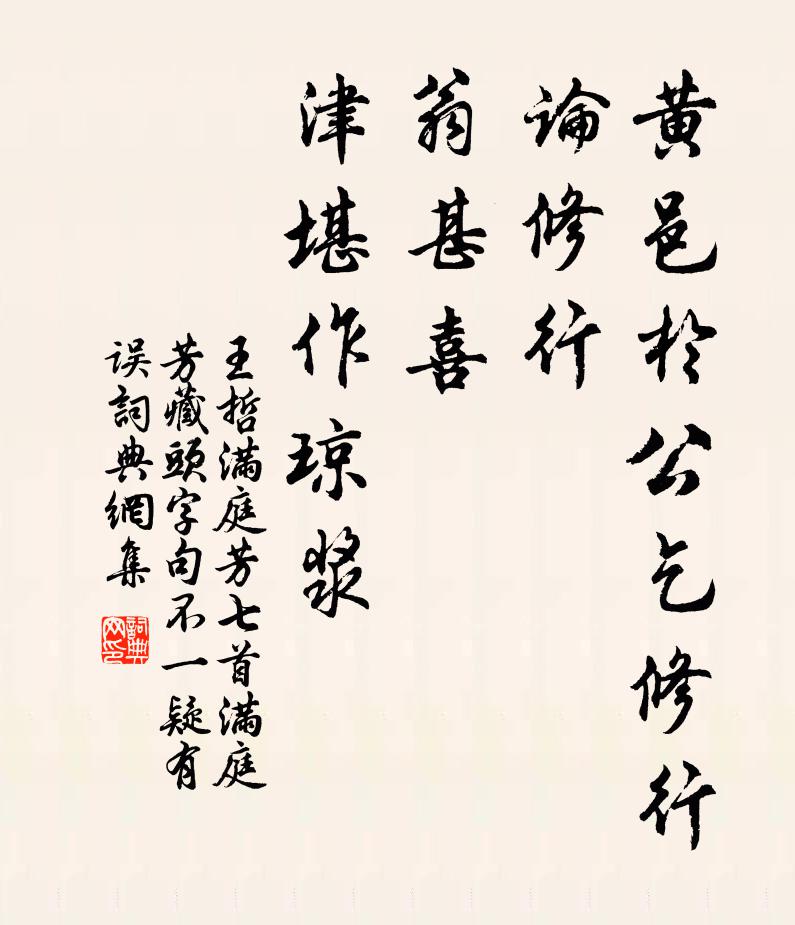 黄邑於公乞修行
論修行
翁甚喜
津堪作琼漿
王哲满庭芳七首满庭
芳藏頭字句不一疑有
误詞典網集
詞典
网印